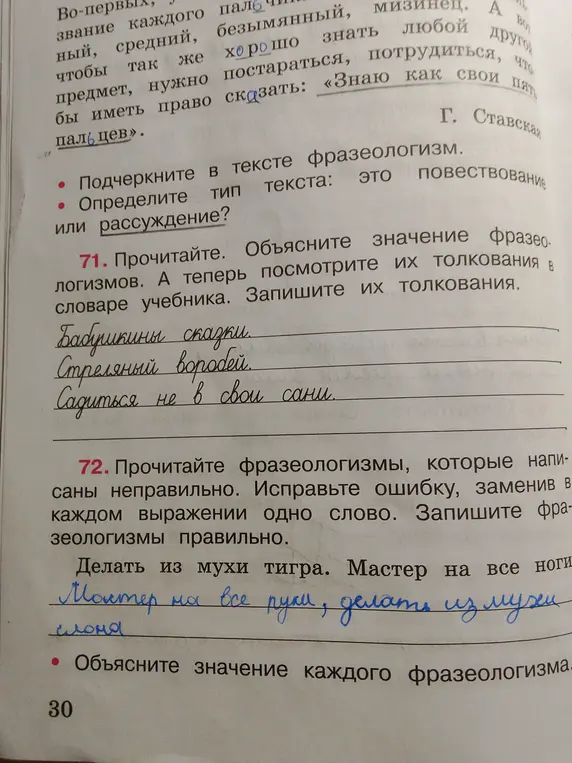 Во-первых,
звание каждого пальчи
ный, средний, безымянный, мизинец. А вот
чтобы так же хорошо знать любой другой
предмет, нужно постараться, потрудиться, что
бы иметь право сказать: «Знаю как свои пять
пальцев».
Г. Ставская
• Подчеркните в тексте фразеологизм.
• Определите тип текста: это повествование
или рассуждение?
71. Прочитайте. Объясните значение фразео-
логизмов. А теперь посмотрите их толкования в
словаре учебника. Запишите их толкования.
Бабушкины сказки.
Стреляный воробей.
Садиться не в свои сани.
72. Прочитайте фразеологизмы, которые напи-
саны неправильно. Исправьте ошибку, заменив в
каждом выражении одно слово. Запишите фра-
зеологизмы правильно.
Делать из мухи тигра. Мастер на все ноги
Мастер на все руки, делать из мухи
слона
• Объясните значение каждого фразеологизма.
30